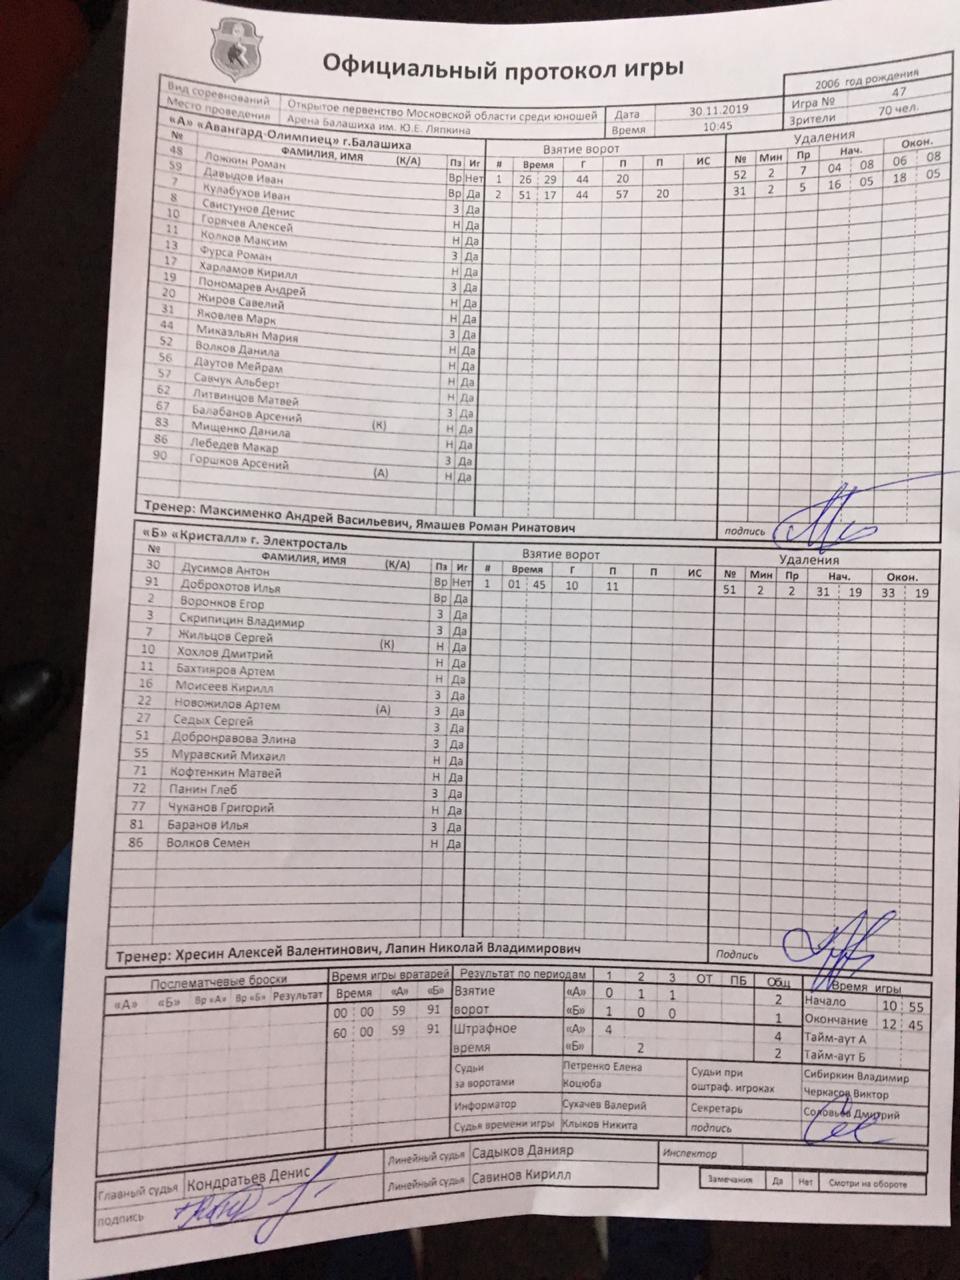 Официальный протокол игры
2006 год рождения
Вид соревнований Открытое первенство Московской области среди юношей Дата 30.11.2019 Игра № 47
Место проведения Арена Балашиха им. Ю.Е. Ляпкина Время 10:45 Зрители 70 чел.
«А» «Авангард-Олимпиец» г.Балашиха Взятие ворот Удаления
№ ФАМИЛИЯ, ИМЯ (К/А) Пз Иг # Время Г П П ИС № Мин Пр Нач. Окон.
48 Ложкин Роман Вр Нет 1 26 29 44 20 52 2 7 04 08 06 08
59 Давыдов Иван Вр Да 2 51 17 44 57 20 31 2 5 16 05 18 05
7 Кулабухов Иван З Да
8 Свистунов Денис Н Да
10 Горячев Алексей Н Да
11 Колков Максим З Да
13 Фурса Роман Н Да
17 Харламов Кирилл З Да
19 Пономарев Андрей Н Да
20 Жиров Савелий Н Да
31 Яковлев Марк З Да
44 Микаэльян Мария Н Да
52 Волков Данила Н Да
56 Даутов Мейрам Н Да
57 Савчук Альберт Н Да
62 Литвинцов Матвей З Да
67 Балабанов Арсений (К) Н Да
83 Мищенко Данила Н Да
86 Лебедев Макар З Да
90 Горшков Арсений (А) Н Да
Тренер: Максименко Андрей Васильевич, Ямашев Роман Ринатович подпись
«Б» «Кристалл» г. Электросталь Взятие ворот Удаления
№ ФАМИЛИЯ, ИМЯ (К/А) Пз Иг # Время Г П П ИС № Мин Пр Нач. Окон.
30 Дусимов Антон Вр Нет 1 01 45 10 11 51 2 2 31 19 33 19
91 Доброхотов Илья Вр Да
2 Воронков Егор З Да
3 Скрипицин Владимир З Да
7 Жильцов Сергей (К) Н Да
10 Хохлов Дмитрий Н Да
11 Бахтияров Артем Н Да
16 Моисеев Кирилл З Да
22 Новожилов Артем (А) З Да
27 Седых Сергей З Да
51 Добронравова Элина З Да
55 Муравский Михаил Н Да
71 Кофтенкин Матвей Н Да
72 Панин Глеб З Да
77 Чуканов Григорий Н Да
81 Баранов Илья З Да
86 Волков Семен Н Да
Тренер: Хресин Алексей Валентинович, Лапин Николай Владимирович Подпись
Послематчевые броски Время игры вратарей Результат по периодам 1 2 3 ОТ ПБ Общ Время игры
«А» «Б» Вр «А» Вр «Б» Результат Время «А» «Б» Взятие «А» 0 1 1 2 Начало 10 55
00 00 59 91 ворот «Б» 1 0 0 1 Окончание 12 45
60 00 59 91 Штрафное «А» 4 4 Тайм-аут А
время «Б» 2 2 Тайм-аут Б
Судьи Петренко Елена Судьи при Сибиркин Владимир
за воротами Коцюба оштраф. игроках Черкасов Виктор
Информатор Сухачев Валерий Секретарь Соловьев Дмитрий
Судья времени игры Клыков Никита подпись
Главный судья Кондратьев Денис Линейный судья Садыков Данияр Инспектор
подпись Линейный судья Савинов Кирилл Замечания Да Нет Смотри на обороте